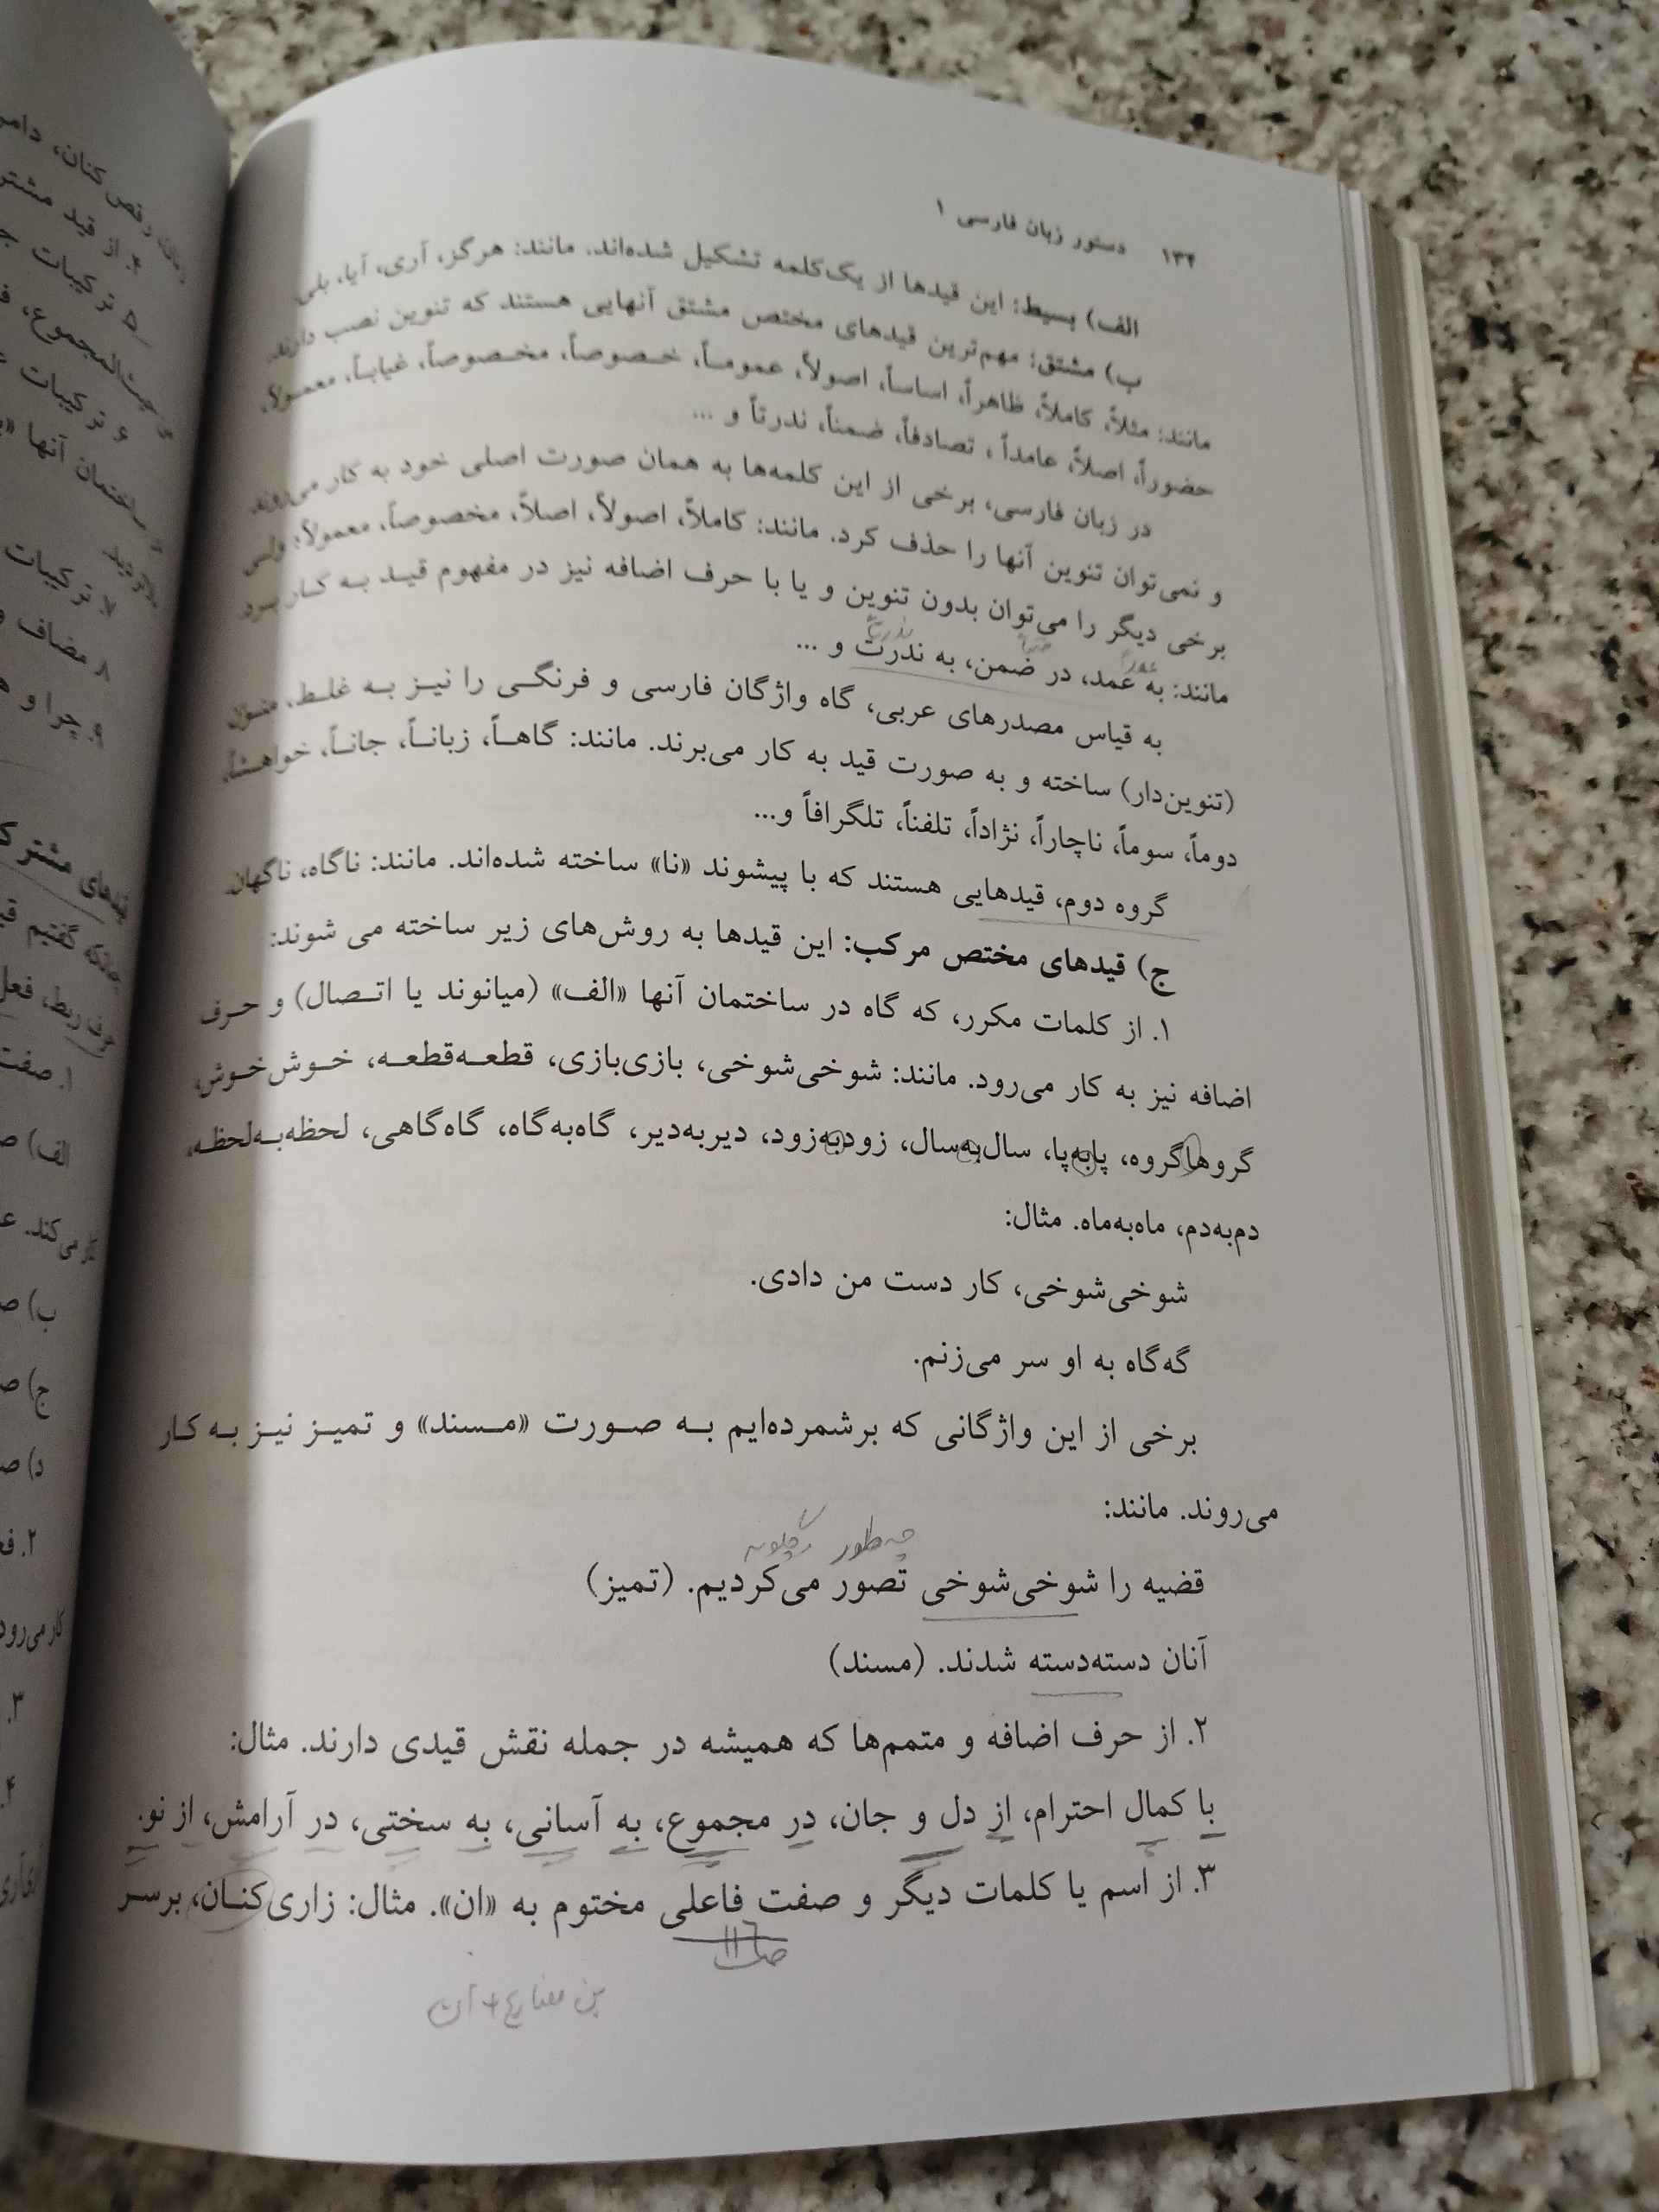 ۱۳۴ دستور زبان فارسی ۱
الف) بسیط: این قیدها از یک‌کلمه تشکیل شده‌اند. مانند: هرگز، آری، آیا، بلی.
ب) مشتق: مهم‌ترین قیدهای مختص مشتق آنهایی هستند که تنوین نصب دارند.
مانند: مثلاً، کاملاً، ظاهراً، اساساً، اصولاً، عموماً، خصوصاً، مخصوصاً، غیاباً، معمولاً،
حضوراً، اصلاً، عامداً ، تصادفاً، ضمناً، ندرتاً و ...
در زبان فارسی، برخی از این کلمه‌ها به همان صورت اصلی خود به کار می‌روند
و نمی‌توان تنوین آنها را حذف کرد. مانند: کاملاً، اصولاً، اصلاً، مخصوصاً، معمولاً؛ ولی
برخی دیگر را می‌توان بدون تنوین و یا با حرف اضافه نیز در مفهوم قید به کار برد.
عمداً ضمناً ندرتاً
مانند: به عمد، در ضمن، به ندرت و ...
به قیاس مصدرهای عربی، گاه واژگان فارسی و فرنگی را نیز به غلط، منوّن
(تنوین‌دار) ساخته و به صورت قید به کار می‌برند. مانند: گاهاً، زباناً، جاناً، خواهشاً،
دوماً، سوماً، ناچاراً، نژاداً، تلفناً، تلگرافاً و...
گروه دوم، قیدهایی هستند که با پیشوند «نا» ساخته شده‌اند. مانند: ناگاه، ناگهان.
ج) قیدهای مختص مرکب: این قیدها به روش‌های زیر ساخته می شوند:
۱. از کلمات مکرر، که گاه در ساختمان آنها «الف» (میانوند یا اتصال) و حرف
اضافه نیز به کار می‌رود. مانند: شوخی‌شوخی، بازی‌بازی، قطعه‌قطعه، خوش‌خوش،
گروهاگروه، پابه‌پا، سال‌به‌سال، زودبه‌زود، دیربه‌دیر، گاه‌به‌گاه، گاه‌گاهی، لحظه‌به‌لحظه،
دم‌به‌دم، ماه‌به‌ماه. مثال:
شوخی‌شوخی، کار دست من دادی.
گه‌گاه به او سر می‌زنم.
برخی از این واژگانی که برشمرده‌ایم به صورت «مسند» و تمیز نیز به کار
می‌روند. مانند:
چه طور چگونه
قضیه را شوخی‌شوخی تصور می‌کردیم. (تمیز)
آنان دسته‌دسته شدند. (مسند)
۲. از حرف اضافه و متمم‌ها که همیشه در جمله نقش قیدی دارند. مثال:
با کمال احترام، از دل و جان، در مجموع، به آسانی، به سختی، در آرامش، از نو.
۳. از اسم یا کلمات دیگر و صفت فاعلی مختوم به «ان». مثال: زاری‌کنان، برسر
بن مضارع + ان
رقص کنان،
۴. از قید
۵ ترکیبات
۶ ترکیبات
ساختمان آنها
۷. ترکیبات
۸ مضاف و
۹. چرا و
مشترک
گفتیم
حرف ربط، فعل
۱. صفت
الف)
می‌کند.
ب)
ج)
د)
۲.
کار می‌رود
۳.
۴.